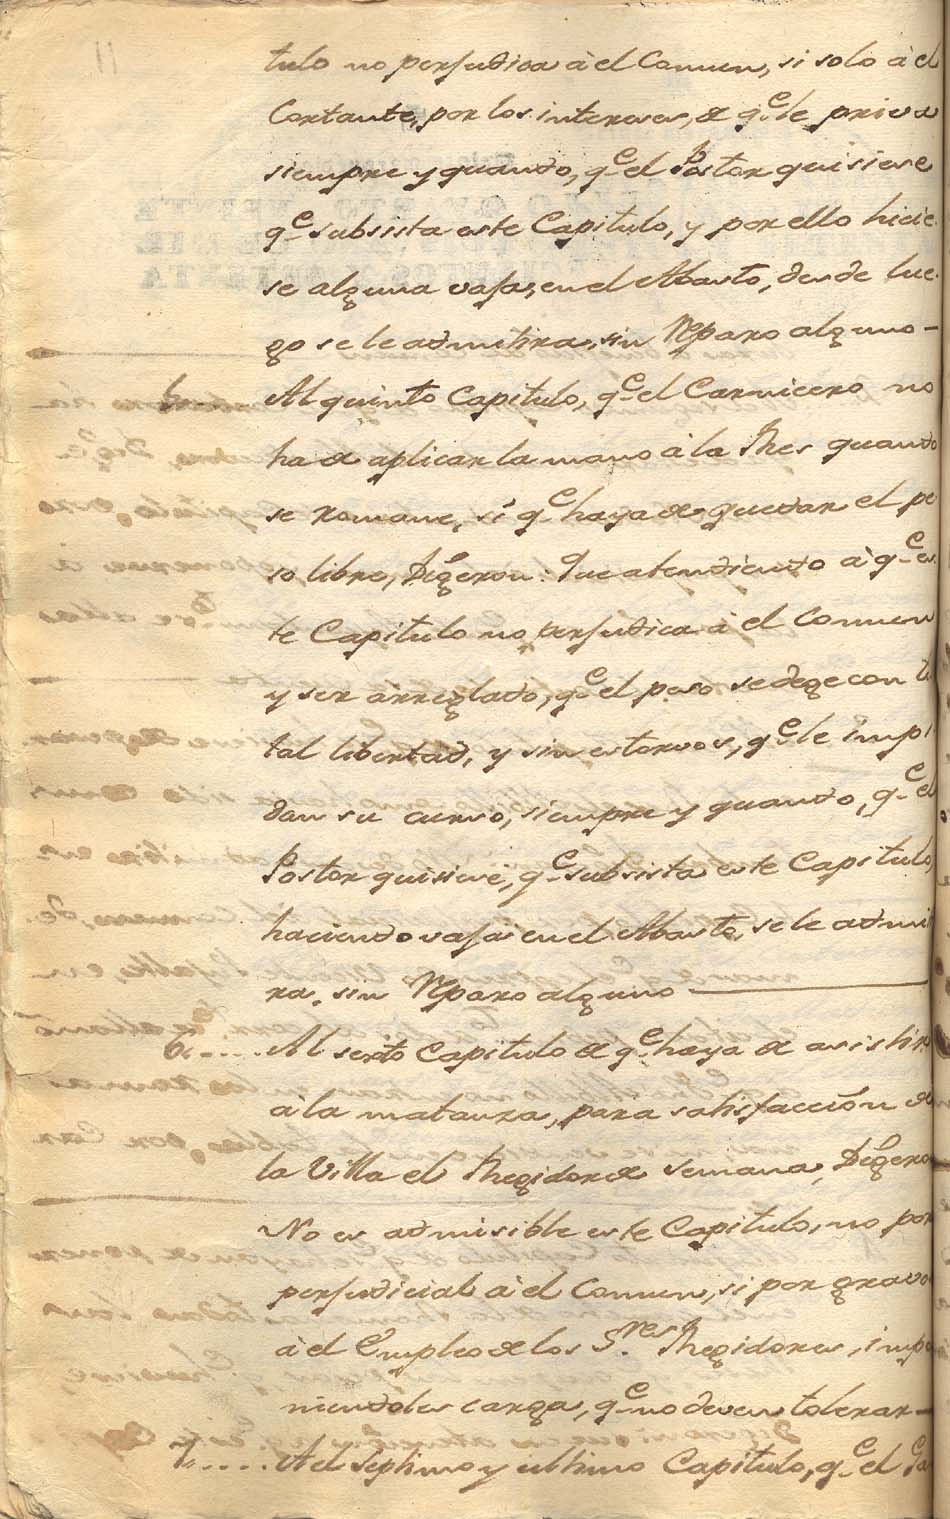 tulo no perjudica à el Comun, si solo à el
Cortante, por los intereses, de qe. le priva
siempre y quando, qe. el Postor quisiere
qe. subsista este Capitulo, y por ello hicie-
se alguna vaja, en el Abasto, desde lue-
go se le admitira, sin Reparo alguno-
5.... Al quinto Capitulo, qe. el Carnicero no
ha de aplicar la mano à la Rhes quando
se Romane, si qe. haya de quedar el pe
so libre, Digeron: Que atendiendo à qe. es
te Capitulo no perjudica à el Comun
y ser arreglado, qe. el peso se dege con to
tal libertad, y sin estorvos, qe. le impi
dan su curso, siempre y quando, qe. el
Postor quisiere, qe. subsista este Capitulo,
haciendo vaja en el Abasto, se le admiti
ra, sin Reparo alguno
6..... Al sexto Capitulo de qe. haya de asistir
à la matanza, para satisfacción de
la Villa el Rhegidor de semana, Digeron
No es admisible este Capitulo, no por
perjudicial à el Comun, si por gravoso
à el Empleo de los Sres. Rhegidores, impo
niendoles carga, qe. no deven tolerar-
7..... A el septimo y ultimo Capitulo, qe. el